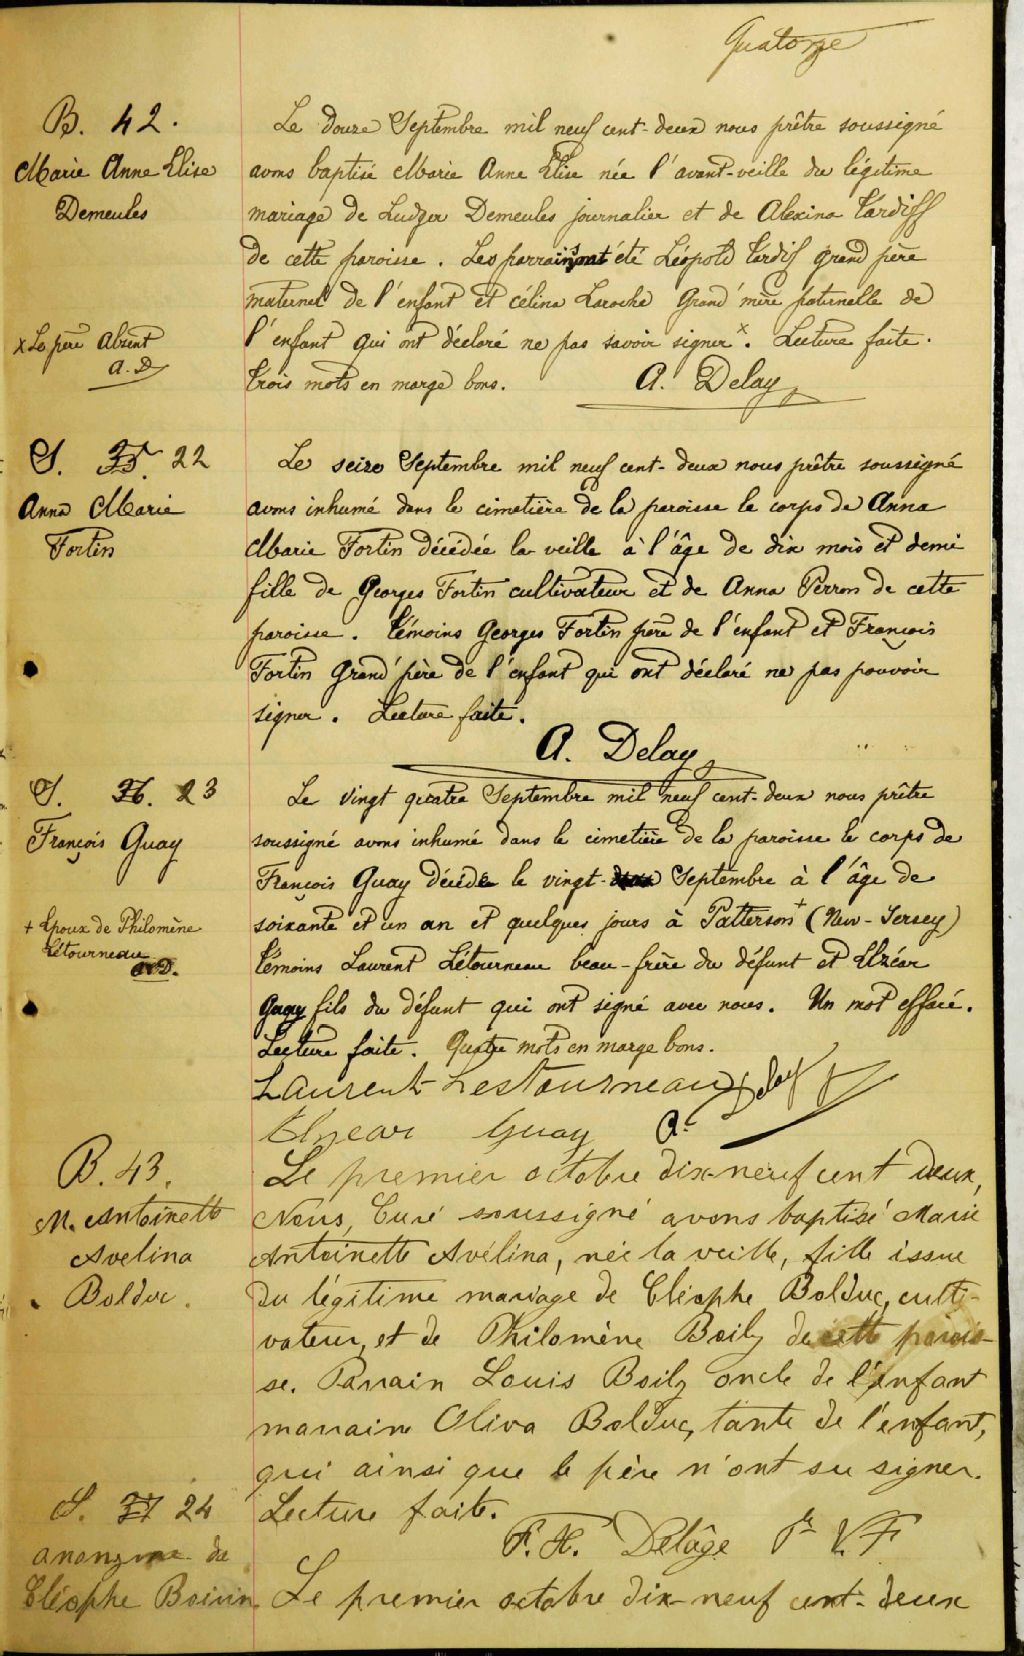 Quatorze
B. 42.
Marie Anne Elise
Demeules
x Le père Absent
A. D
Le douze Septembre mil neuf cent-deux nous prêtre soussigné
avons baptisé Marie Anne Elise née l'avant-veille du légitime
mariage de Ludger Demeules journalier et de Alexina Tardiff
de cette paroisse. Les parrains ont été Léopold Tardif grand père
maternel de l'enfant et célina Laroche Grand'mère paternelle de
l'enfant qui ont déclaré ne pas savoir signer x. Lecture faite.
trois mots en marge bons. A. Delay
S. 35. 22
Anna Marie
Fortin
Le seize Septembre mil neuf cent-deux nous prêtre soussigné
avons inhumé dans le cimetière de la paroisse le corps de Anna
Marie Fortin décédée la veille à l'âge de dix mois et demi
fille de Georges Fortin cultivateur et de Anna Perron de cette
paroisse. témoins Georges Fortin père de l'enfant et François
Fortin Grand'père de l'enfant qui ont déclaré ne pas pouvoir
signer. Lecture faite.
A. Delay
S. 36. 23
François Guay
+ Epoux de Philomène
Létourneau
A.D.
Le vingt quatre Septembre mil neuf cent-deux nous prêtre
soussigné avons inhumé dans le cimetière de la paroisse le corps de
François Guay décédé le vingt- Septembre à l'âge de
soixante et un an et quelques jours à Patterson + (New-Jersey)
témoins Laurent Létourneau beau-frère du défunt et Elzéar
Guay fils du défunt qui ont signé avec nous. Un mot effacé.
Lecture faite. Quatre mots en marge bons.
Laurent Lestourneau
Elzear Guay A. Delay
B. 43.
M. Antoinette
Avelina
Bolduc.
Le premier octobre dix-neuf cent deux,
Nous, Curé soussigné avons baptisé Marie
Antoinette Avélina, née la veille, fille issue
du légitime mariage de Cléophe Bolduc, culti-
vateur, et de Philomène Boily de cette parois-
se. Parrain Louis Boily oncle de l'enfant
marraine Oliva Bolduc, tante de l'enfant,
qui ainsi que le père n'ont su signer.
Lecture faite.
F. H. Delâge Ptre V. F
S. 37 24
anonyme de
Cléophe Boivin
Le premier octobre dix-neuf cent-deux